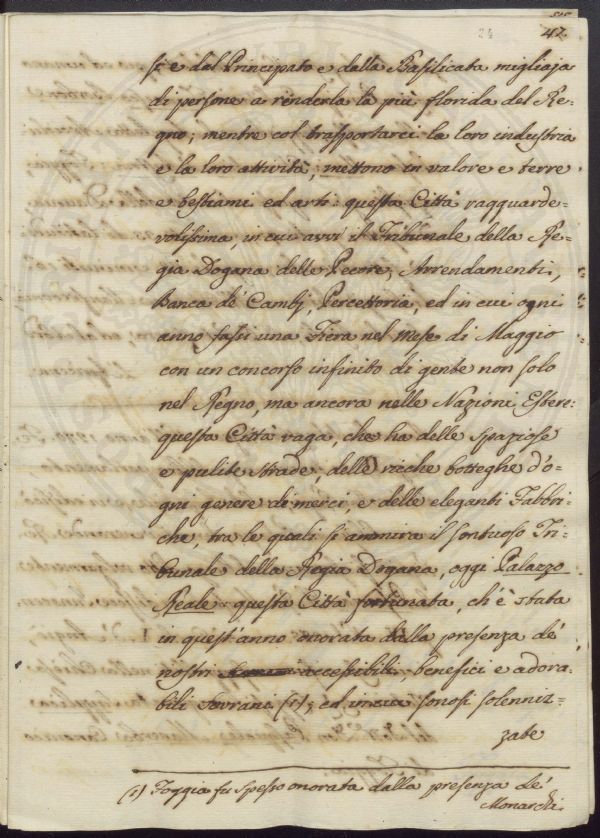 24
42.
si e dal Principato e dalla Basilicata migliaja
di persone a renderla la più florida del Re-
gno; mentre col trasportarci la loro industria
e la loro attività, mettono in valore e terre
e bestiami ed arti: questa Città ragguarde-
volissima, in cui avvi il Tribunale della Re-
gia Dogana delle Pecore, Arrendamenti,
Banca de' Cambj, Percettoria, ed in cui ogni
anno fassi una Fiera nel Mese di Maggio
con un concorso infinito di gente non solo
nel Regno, ma ancora nelle Nazioni Estere:
questa Città vaga, che ha delle spaziose
e pulite strade, delle ricche botteghe d'o-
gni genere di merci, e delle eleganti Fabbri-
che, tra le quali si ammira il sontuoso Tri-
bunale della Regia Dogana, oggi Palazzo
Reale: questa Città fortunata, ch'è stata
in quest'anno onorata dalla presenza de'
nostri accessibili, benefici e adora-
bili Sovrani (1); ed in cui sonosi solenniz-
zate
(1) Foggia fu spesso onorata dalla presenza de'
Monarchi